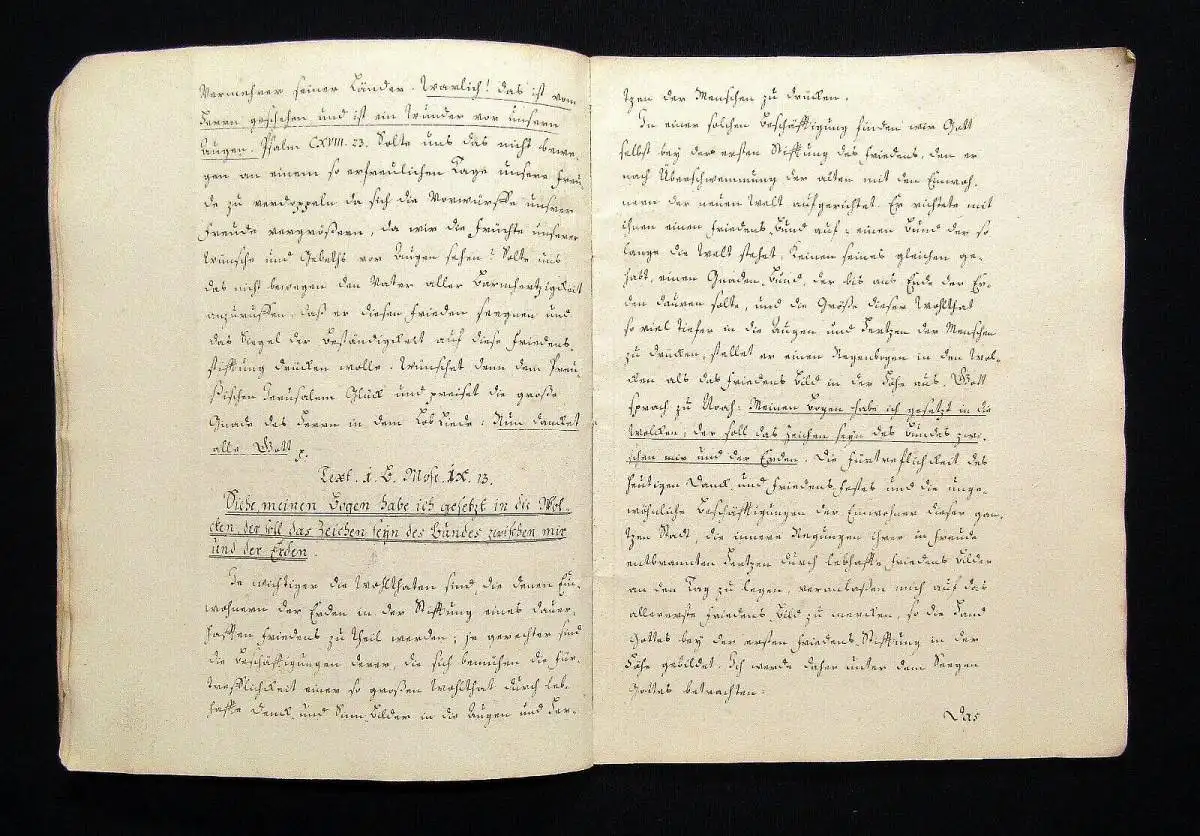 Vermehrer seiner Länder. Warlich! das ist vom
Herrn geschehen und ist ein Wunder vor unsern
Augen. Psalm CXVIII. 23. Solte uns das nicht bewe¬
gen an einem so erfreulichen Tage unsere Freu
de zu verdoppeln da sich die Vorwürffe unserer
Freude vergrößern, da wir die Früchte unserer
Wünsche und Gebeths vor Augen sehen? Solte uns
das nicht bewegen den Vater aller Barmhertzigkeit
anzuruffen, daß er diesen Frieden seegnen und
das Siegel der Beständigkeit auf diese Friedens¬
stifftung drücken wolle. Wünschet denn dem Preu¬
ßischen Jerusalem Glück und preiset die große
Gnade des Herrn in dem Lob Liede: Nun dancket
alle Gott
Text. 1. B. Mose. IX. 13.
Siehe meinen Bogen habe ich gesetzt in die Wol¬
cken, der soll das Zeichen seyn des Bundes zwischen mir
und der Erden.
Je wichtiger die Wohlthaten sind, die denen Ein¬
wohnern der Erden in der Stifftung eines dauer¬
hafften Friedens zu theil werden; je gerechter sind
die Beschäfftigungen derer, die sich bemühen die Für¬
trefflichkeit einer so großen Wohlthat durch leb¬
haffte Denck und Sinn Bilder in die Augen und Her¬
tzen der Menschen zu drücken.
In einer solchen Beschäfftigung finden wir Gott
selbst bey der ersten Stifftung des Friedens, den er
nach Überschwemmung der alten mit den Einwoh¬
nern der neuen Welt aufgerichtet. Er richtete mit
ihnen einen Friedens Bund auf: einen Bund der so
lange die Welt stehet, keinen seines gleichen ge¬
habt, einen Gnaden Bund, der bis ans Ende der Er¬
den dauren solte, und die Größe dieser Wohlthat
so viel tiefer in die Augen und Hertzen der Menschen
zu drücken, stellet er einen Regenbogen in den Wol¬
cken als das Friedens Bild in der Höhe aus. Gott
sprach zu Noah: Meinen Bogen habe ich gesetzt in die
Wolcken, der soll das Zeichen seyn des Bundes zwi¬
schen mir und der Erden. Die Fürtreflichkeit des
heutigen Danck und Friedens Festes und die unge¬
wöhnliche Beschäfftigungen der Einwohner dieser gan¬
tzen Stadt, die innere Regungen ihrer in Freude
entbrannten Hertzen durch lebhaffte Friedens Bilder
an den Tag zu legen, veranlassen mich auf das
allererste Friedens Bild zu mercken, so die Hand
Gottes bey der ersten Friedens Stifftung in der
Höhe gebildet. Ich werde daher unter dem Seegen
Gottes betrachten:
Das